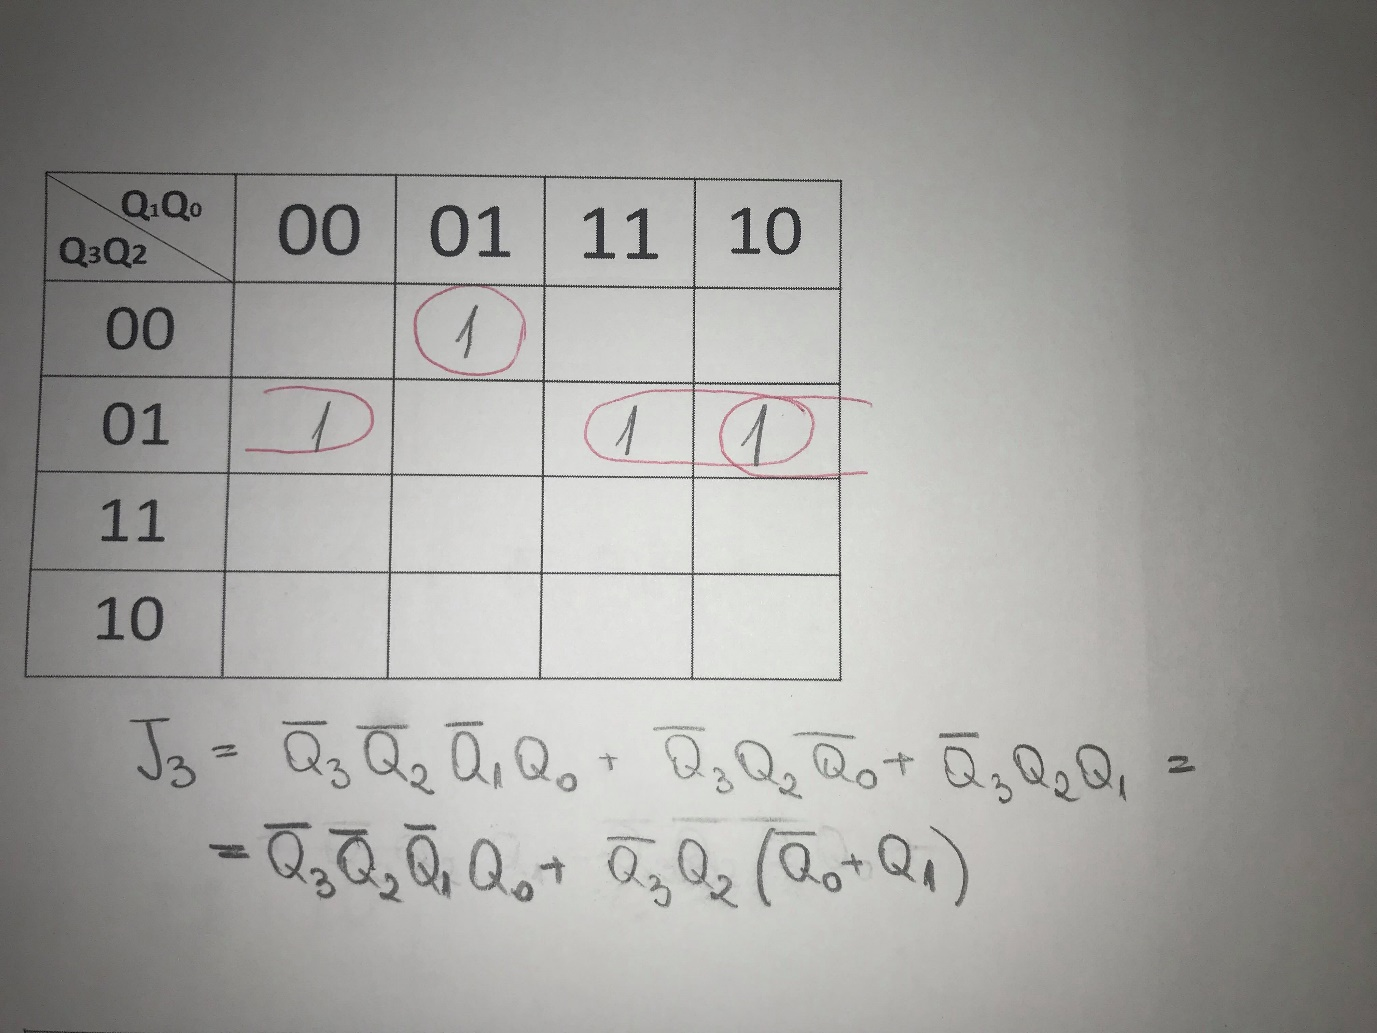 Q₁Q₀ 00 01 11 10
Q₃Q₂
00 1
01 1 1 1
11
10
J₃ = Q̅₃Q̅₂Q̅₁Q₀ + Q̅₃Q₂Q̅₀ + Q̅₃Q₂Q₁ =
= Q̅₃Q̅₂Q̅₁Q₀ + Q̅₃Q₂(Q̅₀+Q₁)